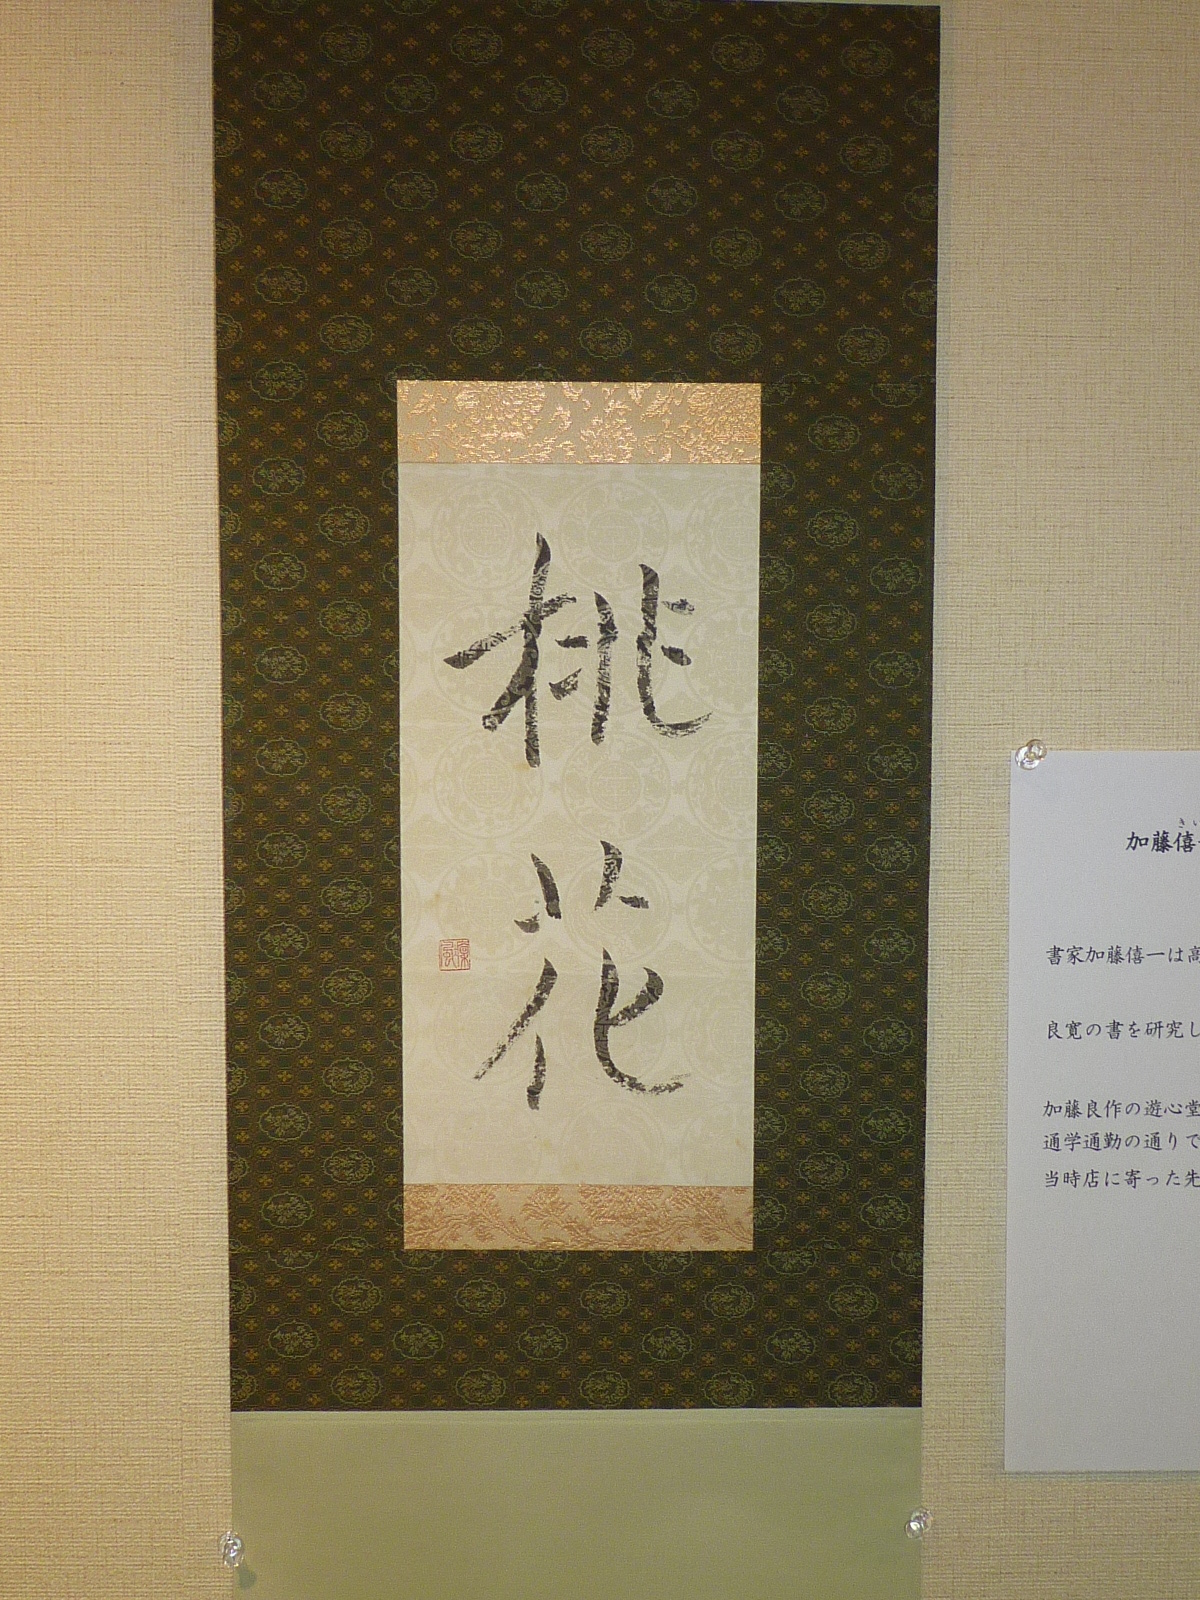 桃花
加藤僖
きい
書家加藤僖一は高
良寛の書を研究し
加藤良作の遊心堂
通学通勤の通りで
当時店に寄った先